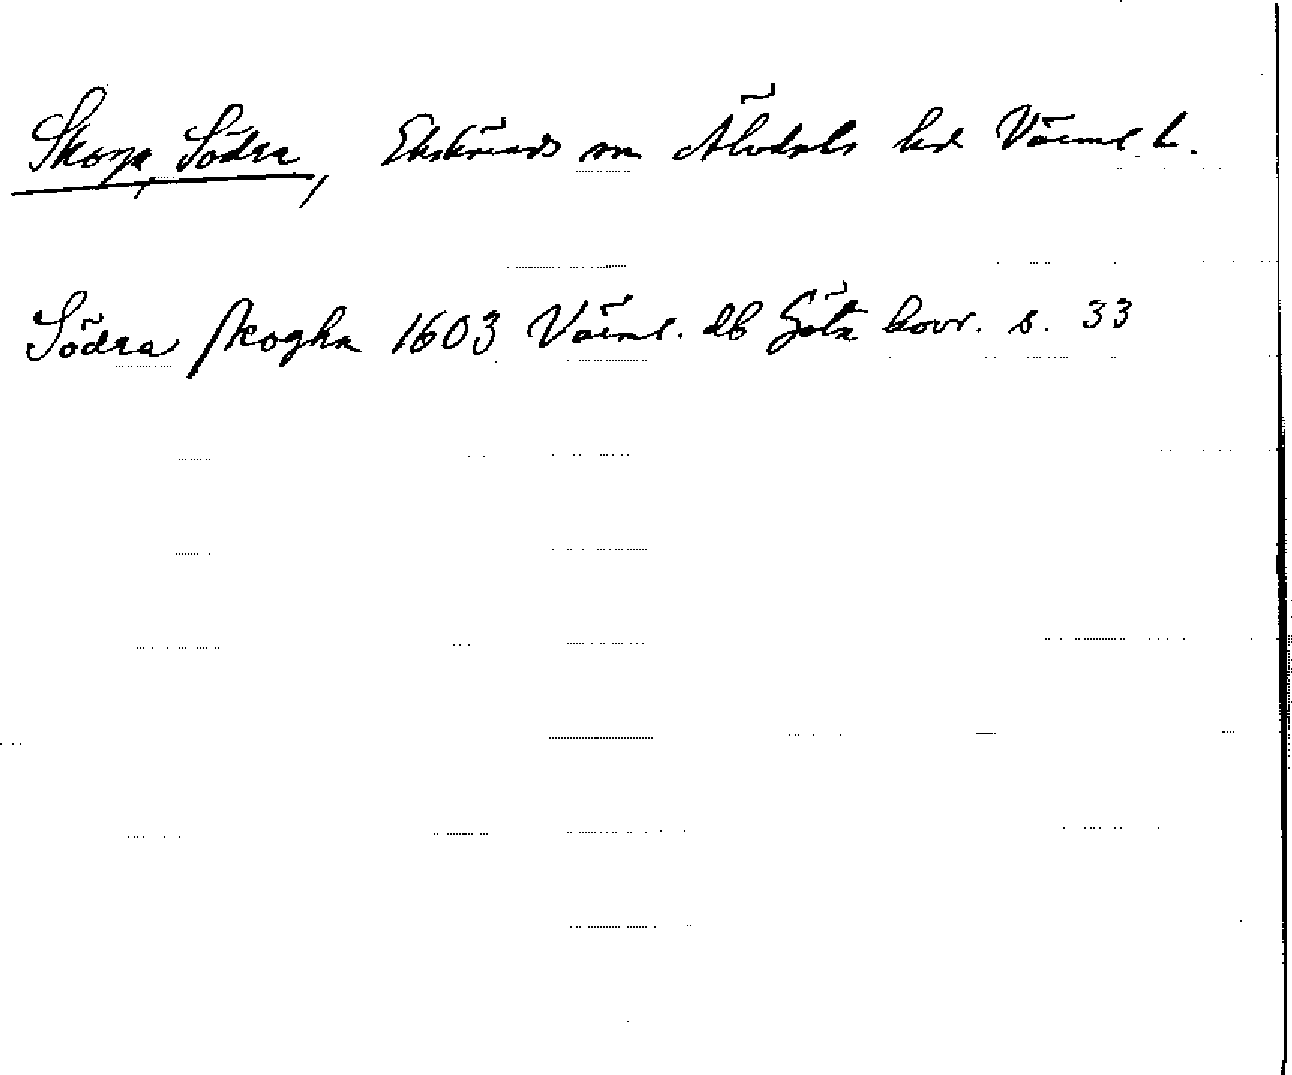 Skoga, Södra, Ekshärads sn Älvdals hd Värml l.
Södra skogha 1603 Värml. db Göta hovr. s. 33